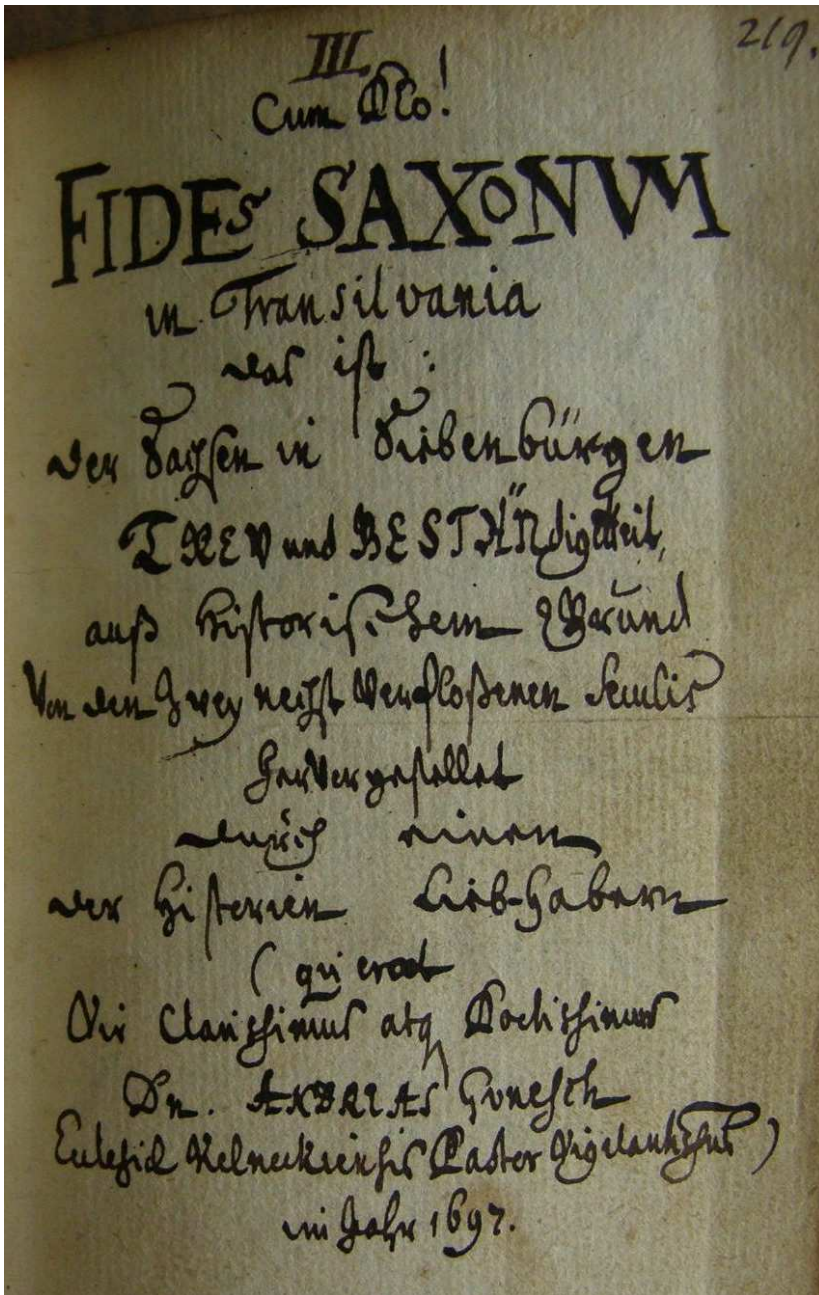 219.
III.
Cum Deo!
FIDEs SAXoNVM
in Transilvania
das ist :
der Sachsen in Siebenbürgen
TREV und BESTÄNdigkeit,
auß Historischem Grund
Von den Zwey nechst Verfloßenen Seculis
herVorgestellet
durch einen
der Historien Lieb-Habern
( qui erat
Vir Clarissimus atq Doctissimus
Dn. ANDREAS
Pastor Vigilantissimus )
im Jahr 1697.